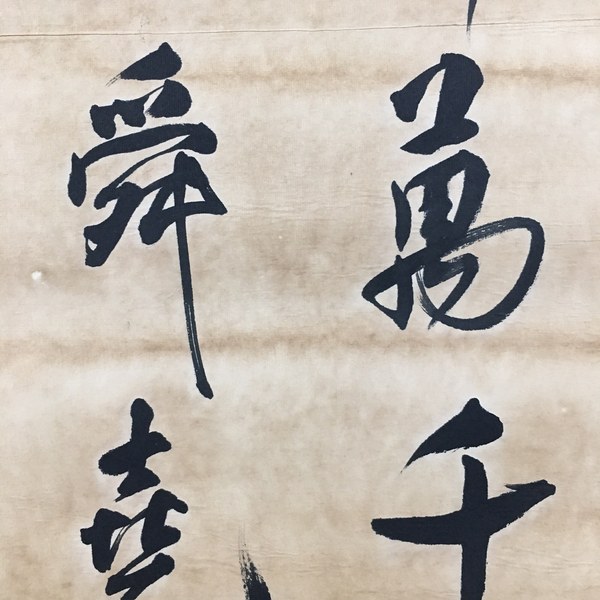 萬千
舜堯